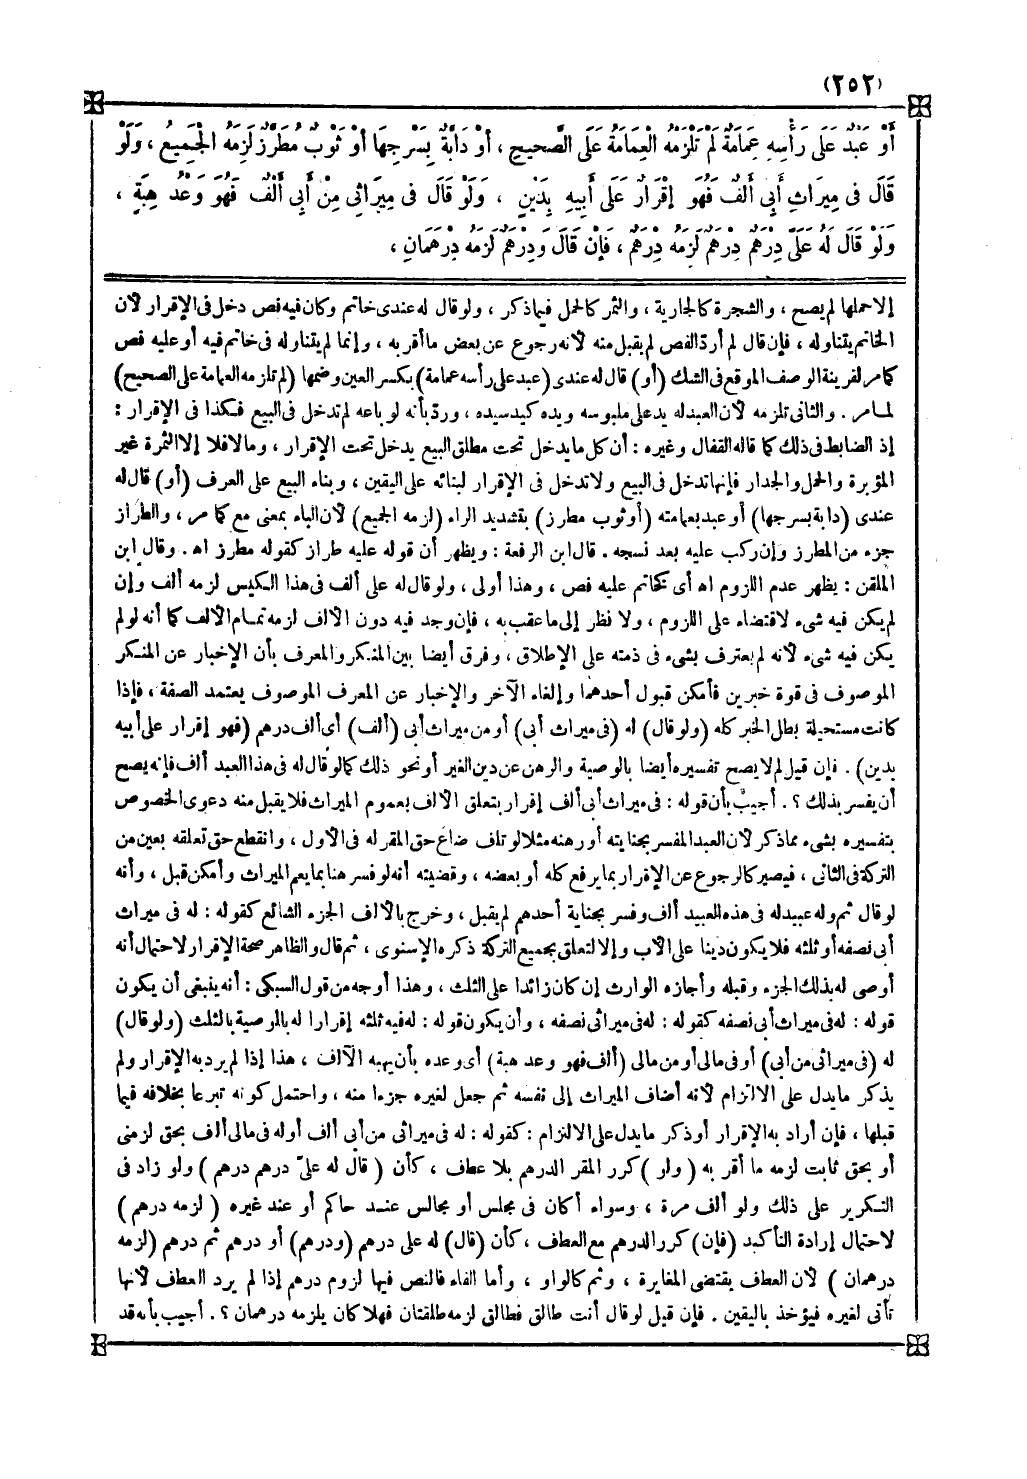 (٢٥٢)
أَوْ عَبْدٌ عَلَى رَأْسِهِ عِمَامَةٌ لَمْ تَلْزَمْهُ الْعِمَامَةُ عَلَى الصَّحِيحِ ، أَوْ دَابَّةٌ بِسَرْجِهَا أَوْ ثَوْبٌ مُطَرَّزٌ لَزِمَهُ الْجَمِيعُ ، وَلَوْ
قَالَ فِى مِيرَاثِ أَبِى أَلْفٌ فَهُوَ إِقْرَارٌ عَلَى أَبِيهِ بِدَيْنٍ ، وَلَوْ قَالَ فِى مِيرَاثِى مِنْ أَبِى أَلْفٌ فَهُوَ وَعْدُ هِبَةٍ ،
وَلَوْ قَالَ لَهُ عَلَىَّ دِرْهَمٌ دِرْهَمٌ لَزِمَهُ دِرْهَمٌ ، فَإِنْ قَالَ وَدِرْهَمٌ لَزِمَهُ دِرْهَمَانِ ،
إلا حملها لم يصح ، والشجرة كالجارية ، والثمر كالحمل فيما ذكر ، ولو قال له عندى خاتم وكان فيه فص دخل فى الإقرار لأن
الخاتم يتناوله ، فإن قال لم أرد الفص لم يقبل منه لأنه رجوع عن بعض ما أقر به ، وإنما لم يتناوله فى خاتم فيه أو عليه فص
كما مر لقرينة الوصف الموقع فى الشك (أو) قال له عندى (عبد على رأسه عمامة) بكسر العين وضمها (لم تلزمه العمامة على الصحيح)
لما مر . والثانى تلزمه لأن العبد له يد على ملبوسه ويده كيد سيده ، ورد بأنه لو باعه لم تدخل فى البيع فكذا فى الإقرار :
إذ الضابط فى ذلك كما قاله القفال وغيره : أن كل ما يدخل تحت مطلق البيع يدخل تحت الإقرار ، وما لا فلا إلا الثمرة غير
المؤبرة والحمل والجدار فإنها تدخل فى البيع ولا تدخل فى الإقرار لبنائه على اليقين ، وبناء البيع على العرف (أو) قال له
عندى (دابة بسرجها) أو عبد بعمامته (أو ثوب مطرز) بتشديد الراء (لزمه الجميع) لأن الباء بمعنى مع كما مر ، والطراز
جزء من المطرز وإن ركب عليه بعد نسجه . قال ابن الرفعة : ويظهر أن قوله عليه طراز كقوله مطرز اه . وقال ابن
الملقن : يظهر عدم اللزوم اه أى كخاتم عليه فص ، وهذا أولى ، ولو قال له على ألف فى هذا الكيس لزمه ألف وإن
لم يكن فيه شىء لاقتضاء على اللزوم ، ولا نظر إلى ما عقب به ، فإن وجد فيه دون الألف لزمه تمام الألف كما أنه لو لم
يكن فيه شىء لأنه لم يعترف بشىء فى ذمته على الإطلاق ، وفرق أيضا بين المنكر والمعرف بأن الإخبار عن المنكر
الموصوف فى قوة خبرين فأمكن قبول أحدهما وإلغاء الآخر والإخبار عن المعرف الموصوف يعتمد الصفة ، فإذا
كانت مستحيلة بطل الخبر كله (ولو قال) له (فى ميراث أبى) أو من ميراث أبى (ألف) أى ألف درهم (فهو إقرار على أبيه
بدين) . فإن قيل لم لا يصح تفسيره أيضا بالوصية والرهن عن دين الغير أو نحو ذلك كما لو قال له فى هذا العبد ألف فإنه يصح
أن يفسر بذلك ؟ . أجيب بأن قوله : فى ميراث أبى ألف إقرار بتعلق الألف بعموم الميراث فلا يقبل منه دعوى الخصوص
بتفسيره بشىء مما ذكر لأن العبد المفسر بجنايته أو رهنه مثلا لو تلف ضاع حق المقر له فى الأول ، وانقطع حق تعلقه بعين من
التركة فى الثانى ، فيصير كالرجوع عن الإقرار بما يرفع كله أو بعضه ، وقضيته أنه لو فسر هنا بما يعم الميراث وأمكن قبل ، وأنه
لو قال ثم وله عبيد له فى هذه العبيد ألف وفسر بجناية أحدهم لم يقبل ، وخرج بالألف الجزء الشائع كقوله : له فى ميراث
أبى نصفه أو ثلثه فلا يكون دينا على الأب وإلا لتعلق بجميع التركة ذكره الإسنوى ، ثم قال والظاهر صحة الإقرار لاحتمال أنه
أوصى له بذلك الجزء وقبله وأجازه الوارث إن كان زائدا على الثلث ، وهذا أوجه من قول السبكى : أنه ينبغى أن يكون
قوله : له فى ميراث أبى نصفه كقوله : له فى ميراثى نصفه ، وأن يكون قوله : له فيه ثلثه إقرارا له بالوصية بالثلث (ولو قال)
له (فى ميراثى من أبى) أو فى مالى أو من مالى (ألف فهو وعد هبة) أى وعده بأن يهبه الألف ، هذا إذا لم يرد به الإقرار ولم
يذكر ما يدل على الالتزام لأنه أضاف الميراث إلى نفسه ثم جعل لغيره جزءا منه ، واحتمل كونه تبرعا بخلافه فيما
قبلها ، فإن أراد به الإقرار أو ذكر ما يدل على الالتزام : كقوله : له فى ميراثى من أبى ألف أو له فى مالى ألف بحق لزمنى
أو بحق ثابت لزمه ما أقر به (ولو) كرر المقر الدرهم بلا عطف ، كأن (قال له علىّ درهم درهم) ولو زاد فى
التكرير على ذلك ولو ألف مرة ، وسواء أكان فى مجلس أو مجالس عند حاكم أو عند غيره (لزمه درهم)
لاحتمال إرادة التأكيد (فإن) كرر الدرهم مع العطف ، كأن (قال) له على درهم (ودرهم) أو درهم ثم درهم (لزمه
درهمان) لأن العطف يقتضى المغايرة ، وثم كالواو ، وأما الفاء فالنص فيها لزوم درهم إذا لم يرد العطف لأنها
تأتى لغيره فيؤخذ باليقين . فإن قيل لو قال أنت طالق فطالق لزمه طلقتان فهلا كان يلزمه درهمان ؟ . أجيب بأنه قد